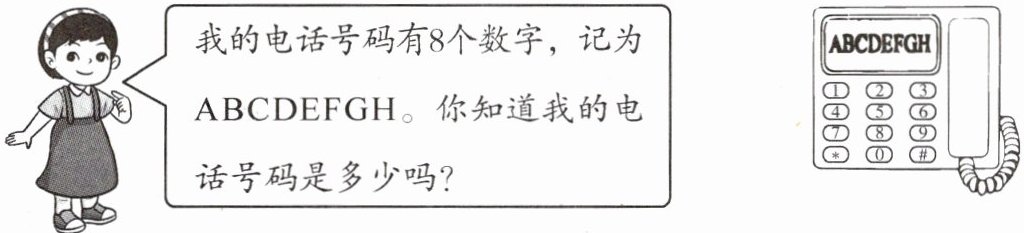 我的电话号码有8个数字，记为
ABCDEFGH。你知道我的电
话号码是多少吗？
ABCDEFGH
1 2 3
4 5 6
7 8 9
* 0 #